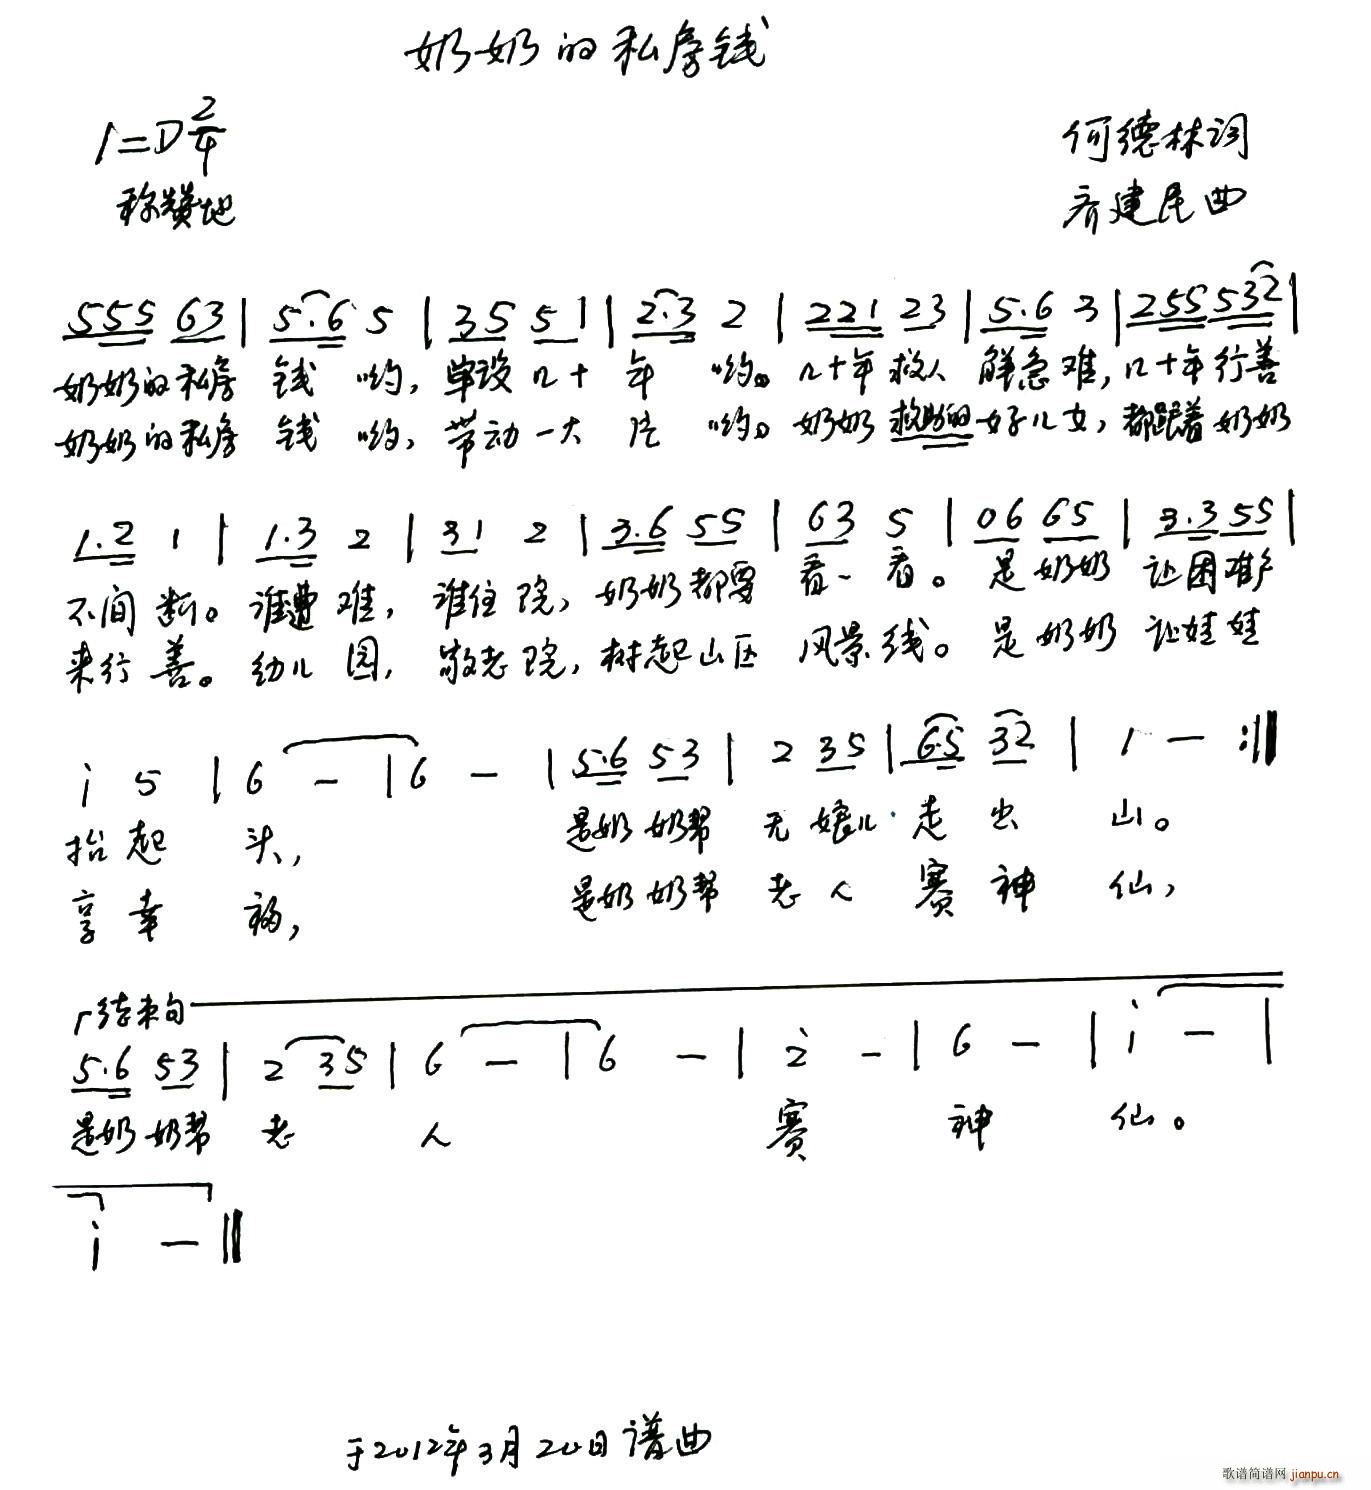 奶奶的私房钱
1=D 2/4
何德林词
称赞地
齐建昆曲
555 63 | 5.6 5 | 35 51 | 2.3 2 | 221 23 | 5.6 3 | 255 532 |
奶奶的私房 钱 哟, 单设几十 年 哟。几十年救人 解急难, 几十年行善
奶奶的私房 钱 哟, 带动一大 片 哟。奶奶救助的好儿女, 都跟着奶奶
1.2 1 | 1.3 2 | 31 2 | 3.6 55 | 63 5 | 06 65 | 3.3 55 |
不间断。谁遭难, 谁住院, 奶奶都要 看一看。是奶奶 让困难户
来行善。幼儿园, 敬老院, 树起山区 风景线。是奶奶 让娃娃
i 5 | 6 - | 6 - | 5.6 53 | 2 35 | 65 32 | 1 - :‖
抬起头, 是奶奶帮 无娘儿走出山。
享幸福, 是奶奶帮 老人赛神仙,
结束句
5.6 53 | 2 35 | 6 - | 6 - | 2̇ - | 6 - | i - |
是奶奶帮 老 人 赛 神 仙。
i - ‖
于2012年3月20日谱曲
歌谱简谱网 jianpu.cn